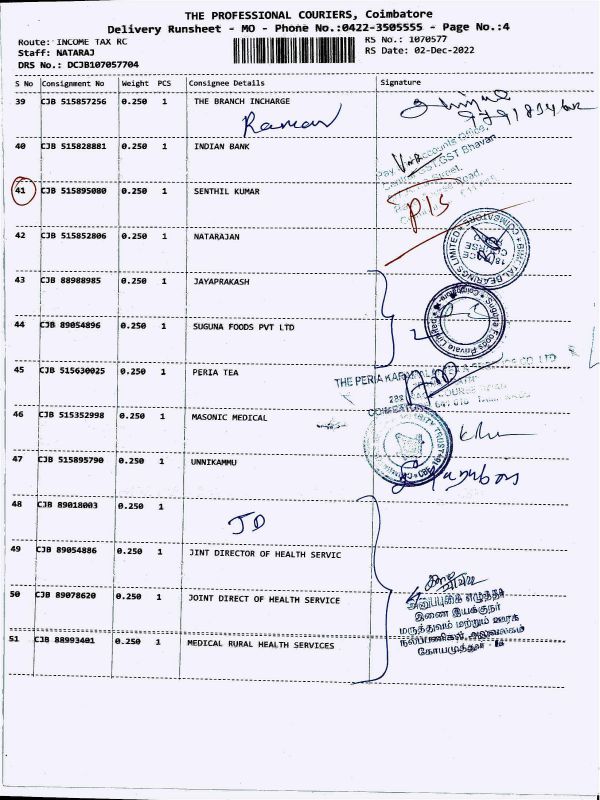 THE PROFESSIONAL COURIERS, Coimbatore
Delivery Runsheet - MO - Phone No.:0422-3505555 - Page No.:4
Route: INCOME TAX RC
RS No.: 1070577
Staff: NATARAJ
RS Date: 02-Dec-2022
DRS No.: DCJB107057704
S No Consignment No Weight PCS Consignee Details Signature
39 CJB 515857256 0.250 1 THE BRANCH INCHARGE
Raman
40 CJB 515828881 0.250 1 INDIAN BANK
Pay Accounts Office,
GST Bhavan
Street,
41 CJB 515895080 0.250 1 SENTHIL KUMAR
P/S
42 CJB 515852806 0.250 1 NATARAJAN
BIMETAL BEARINGS LIMITED COIMBATORE
43 CJB 88988985 0.250 1 JAYAPRAKASH
44 CJB 89054896 0.250 1 SUGUNA FOODS PVT LTD
Suguna Foods Private Limited
45 CJB 515630025 0.250 1 PERIA TEA
THE PERIA KARAMALAI TEA CO LTD
46 CJB 515352998 0.250 1 MASONIC MEDICAL
47 CJB 515895790 0.250 1 UNNIKAMMU
48 CJB 89018003 0.250 1
JD
49 CJB 89054886 0.250 1 JINT DIRECTOR OF HEALTH SERVIC
50 CJB 89078620 0.250 1 JOINT DIRECT OF HEALTH SERVICE
இணை இயக்குநர்
மருத்துவம் மற்றும் ஊரக
51 CJB 88993401 0.250 1 MEDICAL RURAL HEALTH SERVICES
நலப்பணிகள் அலுவலகம்
கோயமுத்தூர் - 18